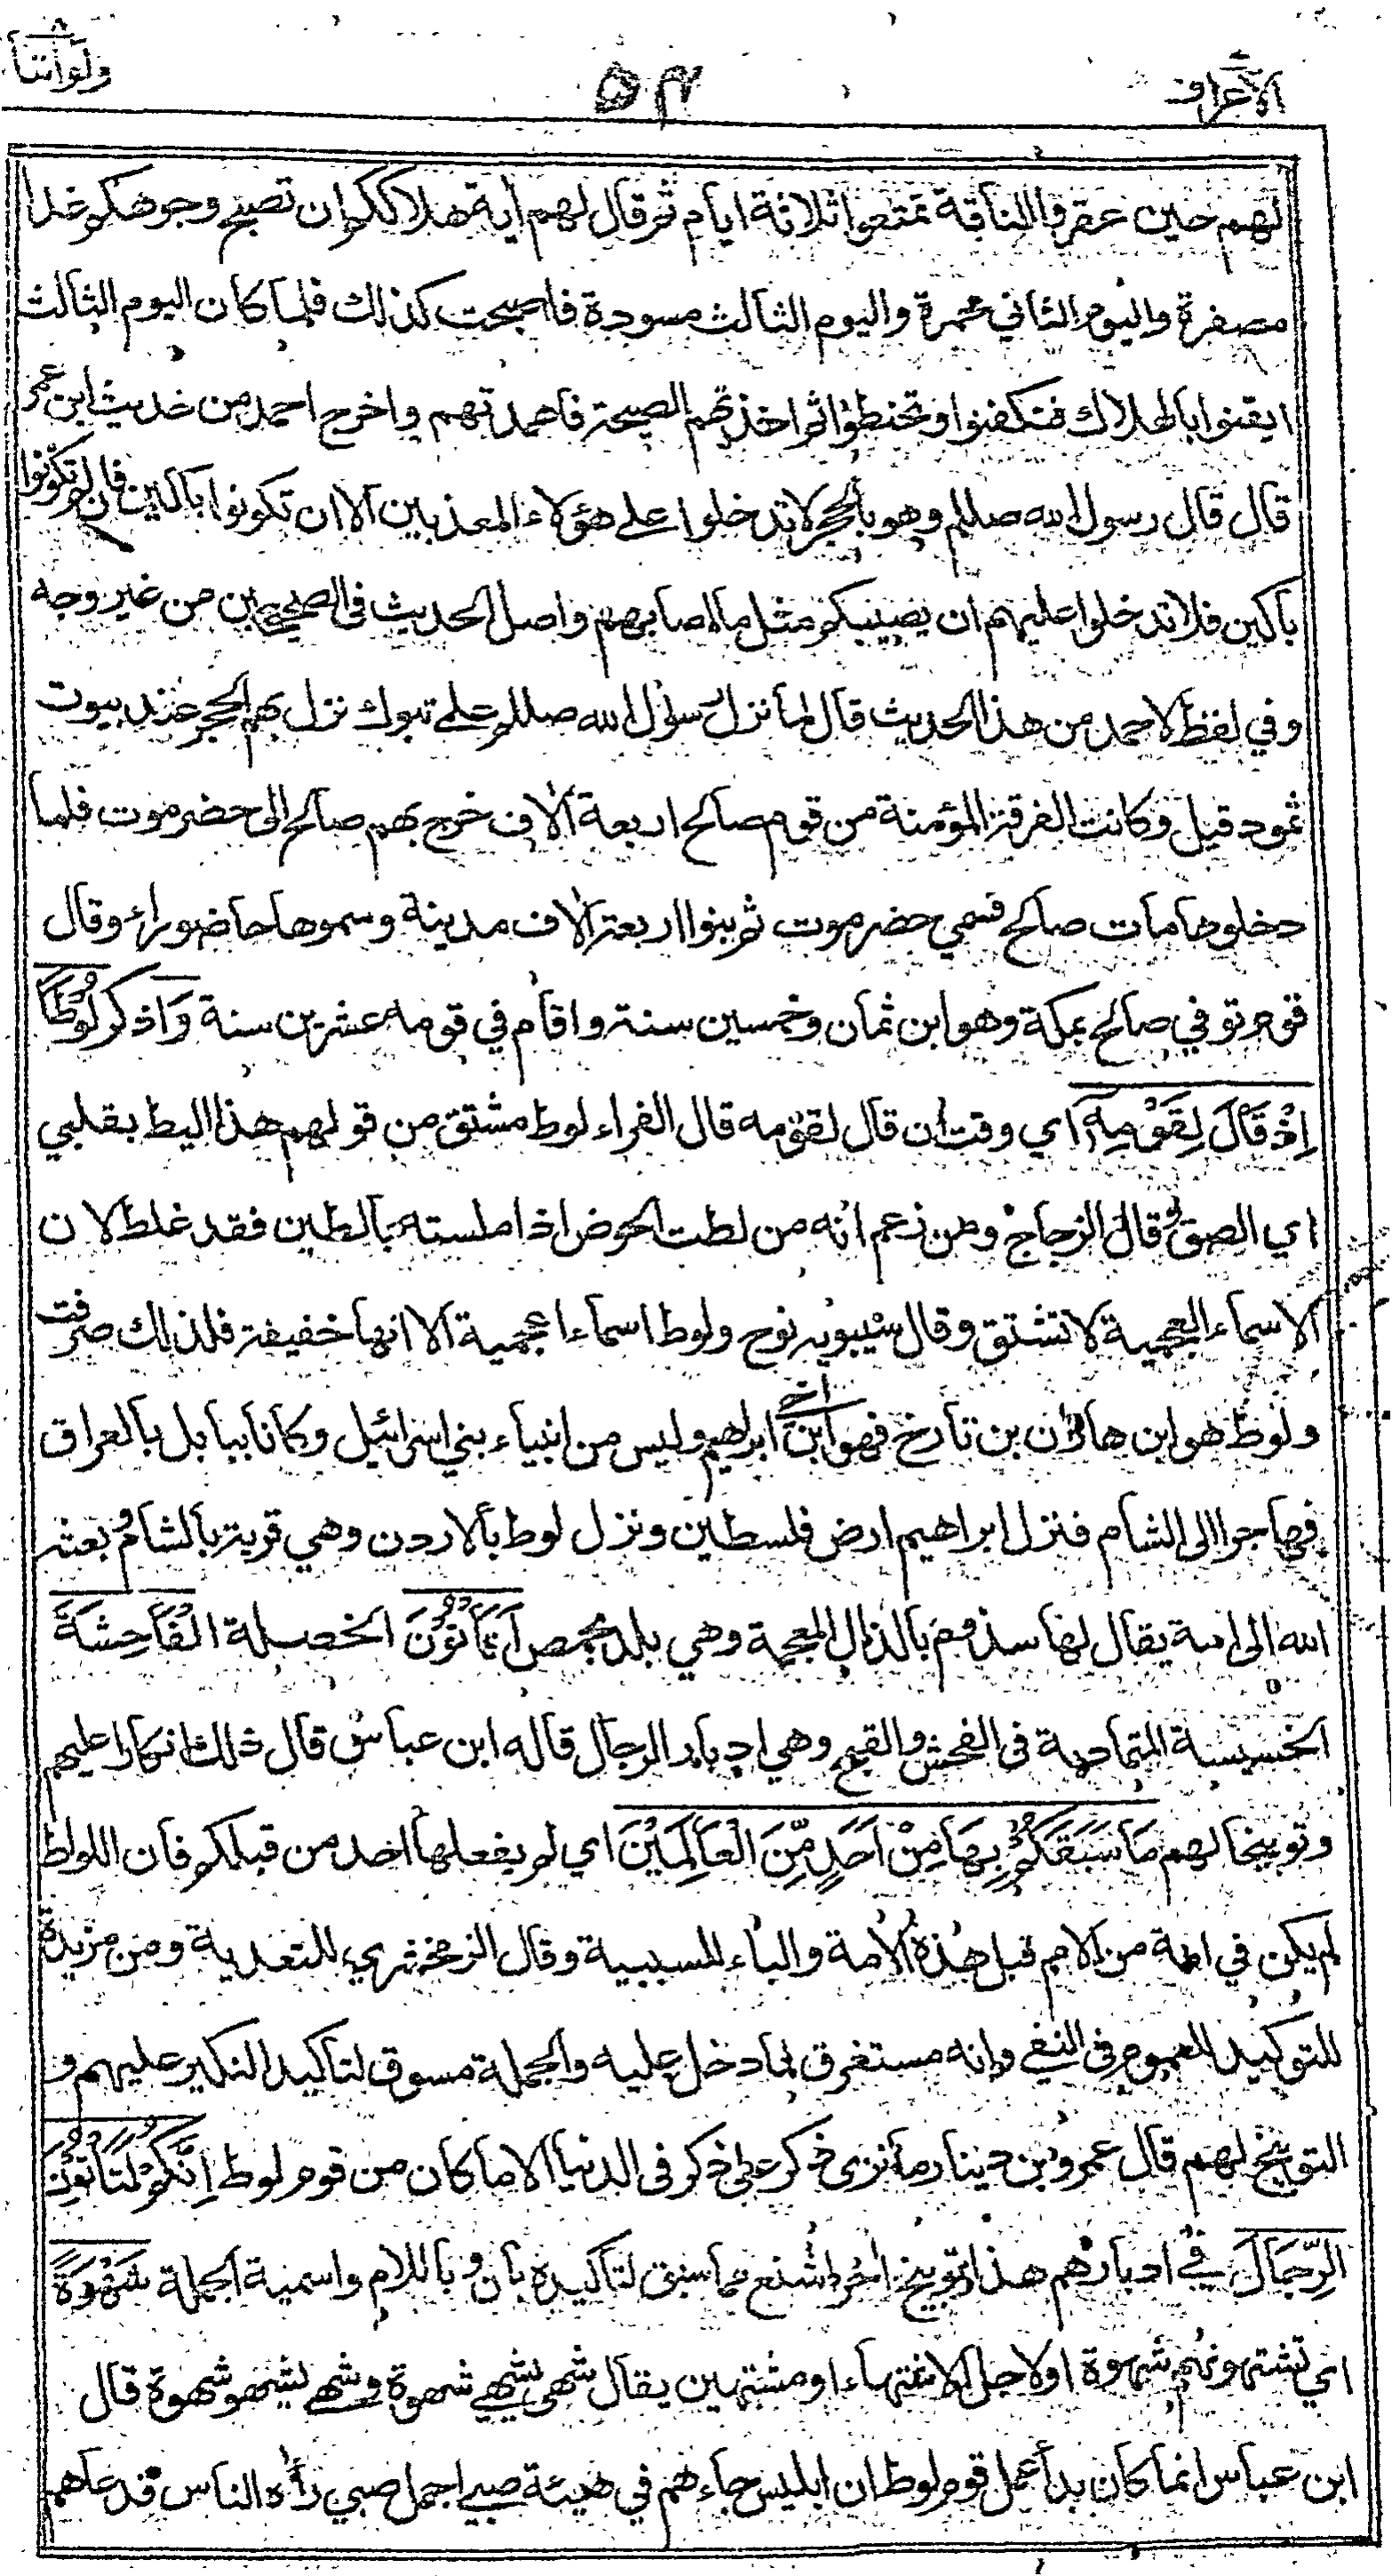 الاعراف
٥٣
ولو اننا
لهم حين عقروا الناقة تمتعوا ثلاثة ايام ثم قال لهم اية هلاككم ان تصبح وجوهكم غدا
مصفرة واليوم الثاني محمرة واليوم الثالث مسودة فاصبحت كذلك فلما كان اليوم الثالث
ايقنوا بالهلاك فتكفنوا وتحنطوا ثم اخذتهم الصيحة فاهمدتهم واخرج احمد من حديث ابن عمر
قال قال رسول الله صللم وهو بالحجر لا تدخلوا على هؤلاء المعذبين الا ان تكونوا باكين فان لم تكونوا
باكين فلا تدخلوا عليهم ان يصيبكم مثل ما اصابهم واصل الحديث في الصحيحين من غير وجه
وفي لفظ لاحمد من هذا الحديث قال لما نزل رسول الله صللم على تبوك نزل بهم الحجر عند بيوت
ثمود قيل وكانت الفرقة المؤمنة من قوم صالح اربعة الاف خرج بهم صالح الى حضرموت فلما
دخلوها مات صالح فسمي حضرموت ثم بنوا اربعة الاف مدينة وسموها حاضوراء وقال
قوم توفي صالح بمكة وهو ابن ثمان وخمسين سنة واقام في قومه عشرين سنة وَاذكر لُوْطًا
اِذْ قَالَ لِقَوْمِهٖ اي وقت ان قال لقومه قال الفراء لوط مشتق من قولهم هذا اليط بقلبي
اي الصق وقال الزجاج ومن زعم انه من لطت الحوض اذا ملسته بالطين فقد غلط لان
الاسماء العجمية لا تشتق وقال سيبويه نوح ولوط اسماء اعجمية الا انها خفيفة فلذلك صرفت
ولوط هو ابن هاران بن تارخ فهو ابن اخي ابراهيم وليس من انبياء بني اسرائيل وكانا ببابل بالعراق
فهاجرا الى الشام فنزل ابراهيم ارض فلسطين ونزل لوط بالاردن وهي قرية بالشام وبعثه
الله الى امة يقال لها سذوم بالذال المعجمة وهي بلد بحمص اَتَأتُوْنَ الخصلة الْفَاحِشَةَ
الخسيسة المتمادية في الفحش والقبح وهي ادبار الرجال قاله ابن عباس قال ذلك انكارا عليهم
وتوبيخا لهم مَا سَبَقَكُمْ بِهَا مِنْ اَحَدٍ مِّنَ الْعَالَمِيْنَ اي لم يفعلها احد من قبلكم فان اللواط
لم يكن في امة من الامم قبل هذه الامة والباء للسببية وقال الزمخشري للتعدية ومن مزيدة
للتوكيد للعموم في النفي وانه مستغرق لما دخل عليه والجملة مسوق لتاكيد النكير عليهم و
التوبيخ لهم قال عمرو بن دينار ما نزى ذكر على ذكر في الدنيا الا ما كان من قوم لوط اِنَّكُمْ لَتَأتُوْنَ
الرِّجَالَ في ادبارهم هذا توبيخ اخر اشنع مما سبق لتاكيده بان وباللام واسمية الجملة شَهْوَةً
اي تشتهونهم شهوة او لاجل الاشتهاء او مشتهين يقال شهى يشهي شهوة وشهى يشهو شهوة قال
ابن عباس انما كان بدأ عمل قوم لوط ان ابليس جاءهم في هيئة صبي اجمل صبي رأه الناس فدعاهم